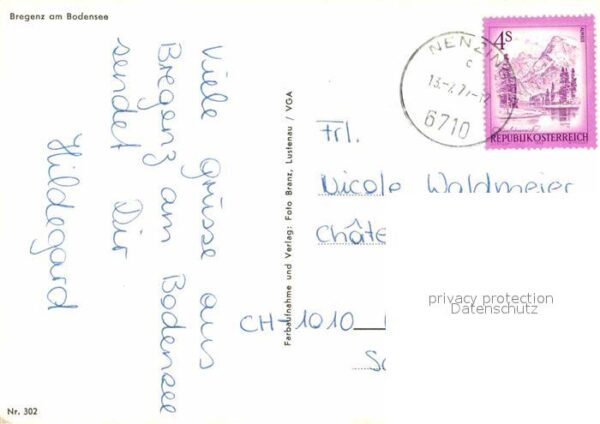 Bregenz am Bodensee
Viele grüsse aus
Bregenz am Bodensee
sendet Dir
Hildegard
Nr. 302
Farbaufnahme und Verlag: Foto Branz, Lustenau / VGA
NENZING
c
6710
4S
REPUBLIK ÖSTERREICH
Frl.
Nicole Waldmeier
Châte
CH-1010
privacy protection
Datenschutz